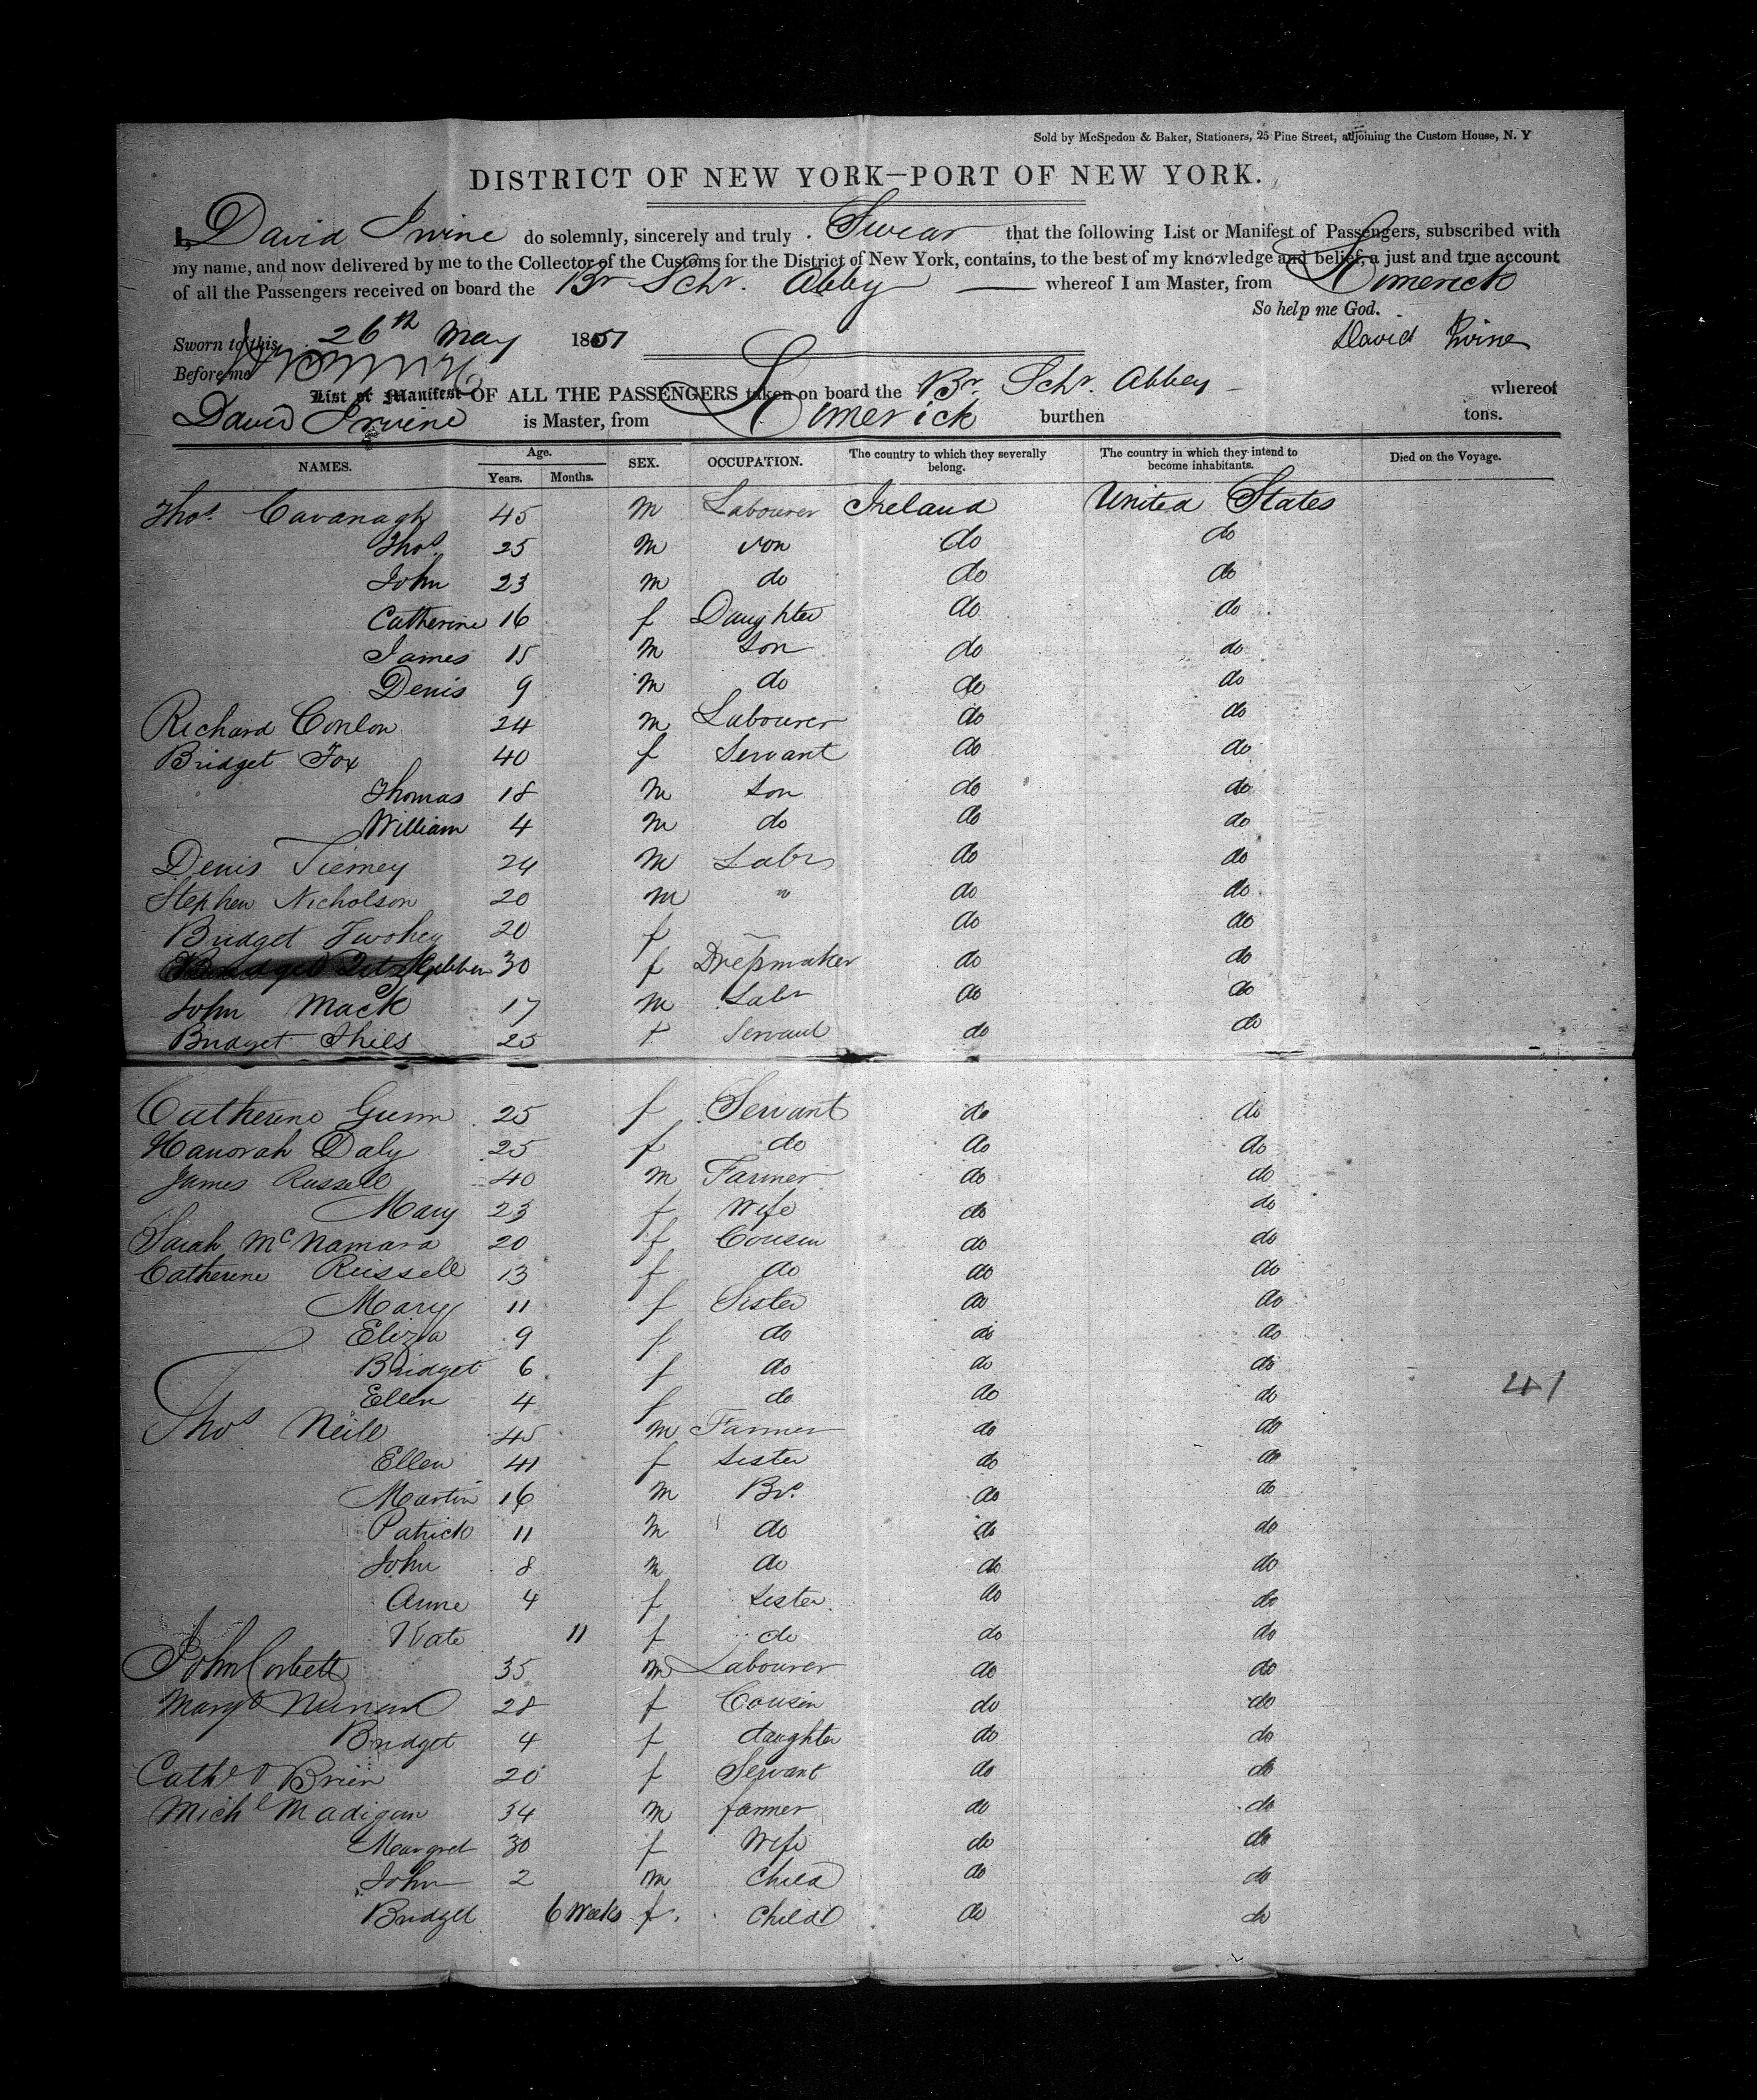 Sold by McSpedon & Baker, Stationers, 25 Pine Street, adjoining the Custom House, N. Y
DISTRICT OF NEW YORK—PORT OF NEW YORK.
I, David Irvine do solemnly, sincerely and truly Swear that the following List or Manifest of Passengers, subscribed with
my name, and now delivered by me to the Collector of the Customs for the District of New York, contains, to the best of my knowledge and belief, a just and true account
of all the Passengers received on board the Br Schr. Abbey whereof I am Master, from Limerick
So help me God.
Sworn to this 26th May 1851 David Irvine
Before me
List or Manifest OF ALL THE PASSENGERS taken on board the Br. Schr. Abbey whereof
David Irvine is Master, from Limerick burthen tons.
NAMES. Age. Years. Months. SEX. OCCUPATION. The country to which they severally belong. The country in which they intend to become inhabitants. Died on the Voyage.
Thos. Cavanagh 45 M Labourer Ireland United States
Thos. 25 M son do do
John 23 M do do do
Catherine 16 f Daughter do do
James 15 M son do do
Denis 9 M do do do
Richard Conlon 24 M Labourer do do
Bridget Fox 40 f Servant do do
Thomas 18 M son do do
William 4 M do do do
Denis Tierney 24 M Labr do do
Stephen Nicholson 20 M " do do
Bridget Twohey 20 f do do
30 f Dressmaker do do
John Mack 17 M Labr do do
Bridget Shiels 25 f Servant do do
Catherine Gunn 25 f Servant do do
Hanorah Daly 25 f do do do
James Russell 40 M Farmer do do
Mary 23 f Wife do do
Sarah McNamara 20 f Cousin do do
Catherine Russell 13 f do do do
Mary 11 f Sister do do
Eliza 9 f do do do
Bridget 6 f do do do
Ellen 4 f do do do
41
Thos Neile 45 M Farmer do do
Ellen 41 f Sister do do
Martin 16 M Bro. do do
Patrick 11 M do do do
John 8 M do do do
Anne 4 f sister do do
Kate 11 f do do do
John Corbett 35 M Labourer do do
Margt 28 f Cousin do do
Bridget 4 f daughter do do
Cathe O Brien 20 f Servant do do
Michl Madigan 34 M farmer do do
Margret 30 f Wife do do
John 2 M child do do
Bridget 6 Weeks f. Child do do